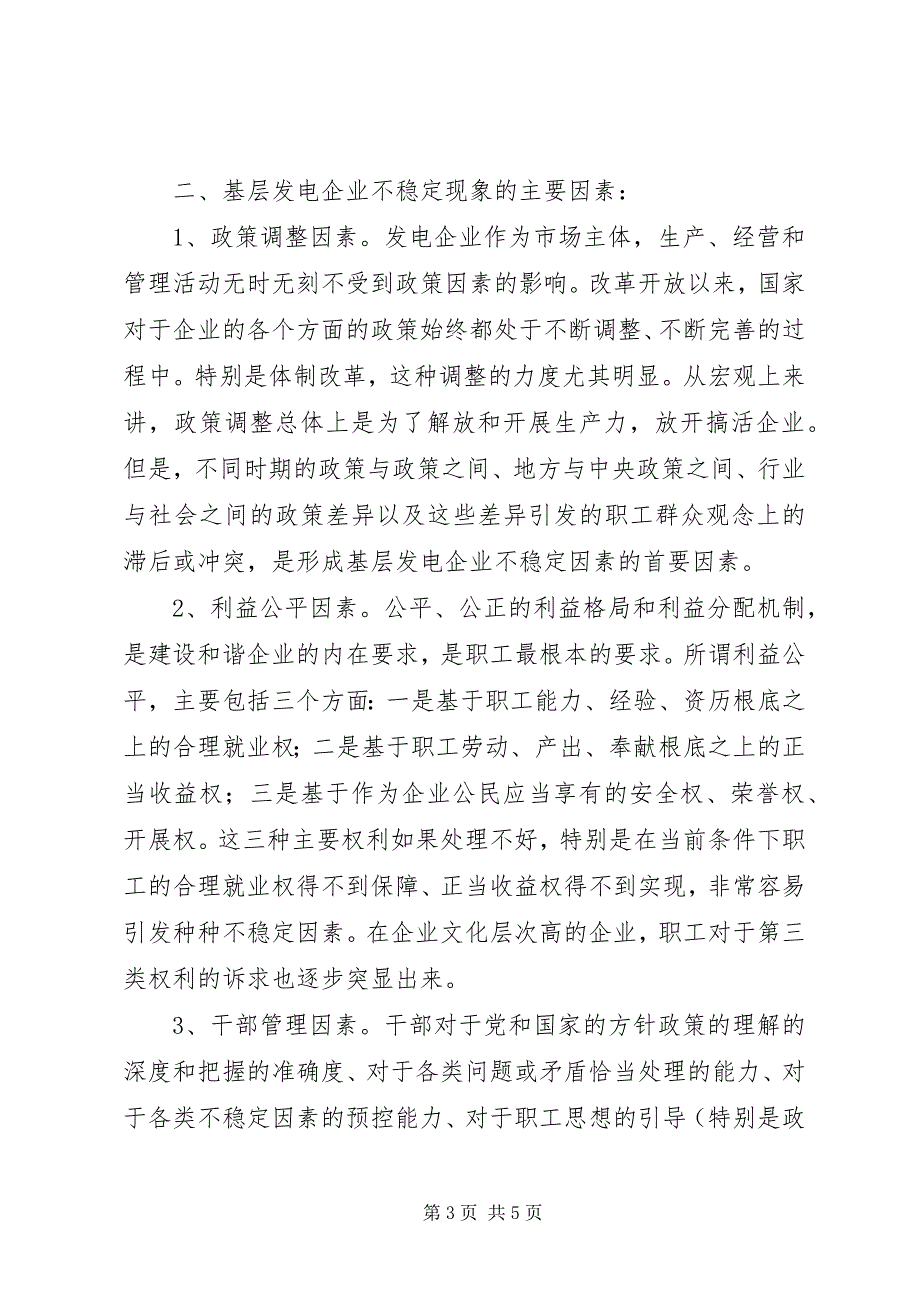 二、基层发电企业不稳定现象的主要因素：
1、政策调整因素。发电企业作为市场主体，生产、经营和
管理活动无时无刻不受到政策因素的影响。改革开放以来，国家
对于企业的各个方面的政策始终都处于不断调整、不断完善的过
程中。特别是体制改革，这种调整的力度尤其明显。从宏观上来
讲，政策调整总体上是为了解放和开展生产力，放开搞活企业。
但是，不同时期的政策与政策之间、地方与中央政策之间、行业
与社会之间的政策差异以及这些差异引发的职工群众观念上的
滞后或冲突，是形成基层发电企业不稳定因素的首要因素。
2、利益公平因素。公平、公正的利益格局和利益分配机制，
是建设和谐企业的内在要求，是职工最根本的要求。所谓利益公
平，主要包括三个方面：一是基于职工能力、经验、资历根底之
上的合理就业权；二是基于职工劳动、产出、奉献根底之上的正
当收益权；三是基于作为企业公民应当享有的安全权、荣誉权、
开展权。这三种主要权利如果处理不好，特别是在当前条件下职
工的合理就业权得不到保障、正当收益权得不到实现，非常容易
引发种种不稳定因素。在企业文化层次高的企业，职工对于第三
类权利的诉求也逐步突显出来。
3、干部管理因素。干部对于党和国家的方针政策的理解的
深度和把握的准确度、对于各类问题或矛盾恰当处理的能力、对
于各类不稳定因素的预控能力、对于职工思想的引导（特别是政
第 3 页 共 5 页